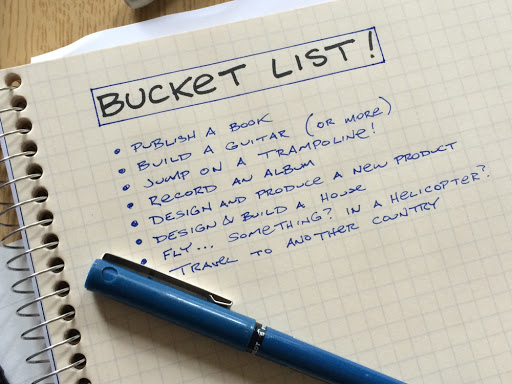 BUCKET LIST!
• PUBLISH A BOOK
• BUILD A GUITAR (OR MORE)
• JUMP ON A TRAMPOLINE!
• RECORD AN ALBUM
• DESIGN AND PRODUCE A NEW PRODUCT
• DESIGN & BUILD A HOUSE
• FLY... SOMETHING? IN A HELICOPTER?.
• TRAVEL TO ANOTHER COUNTRY